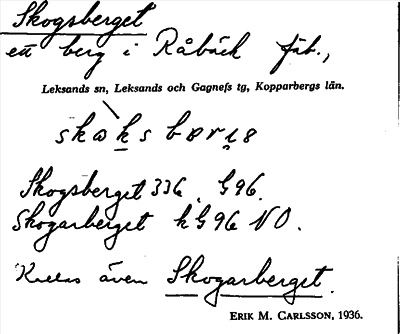 Skogsberget
ett berg i Råbäck fäb.,
Leksands sn, Leksands och Gagnefs tg, Kopparbergs län.
Skogsberget 336. G96.
Skogarberget kG96 NO.
Kallas även Skogarberget.
ERIK M. CARLSSON, 1936.